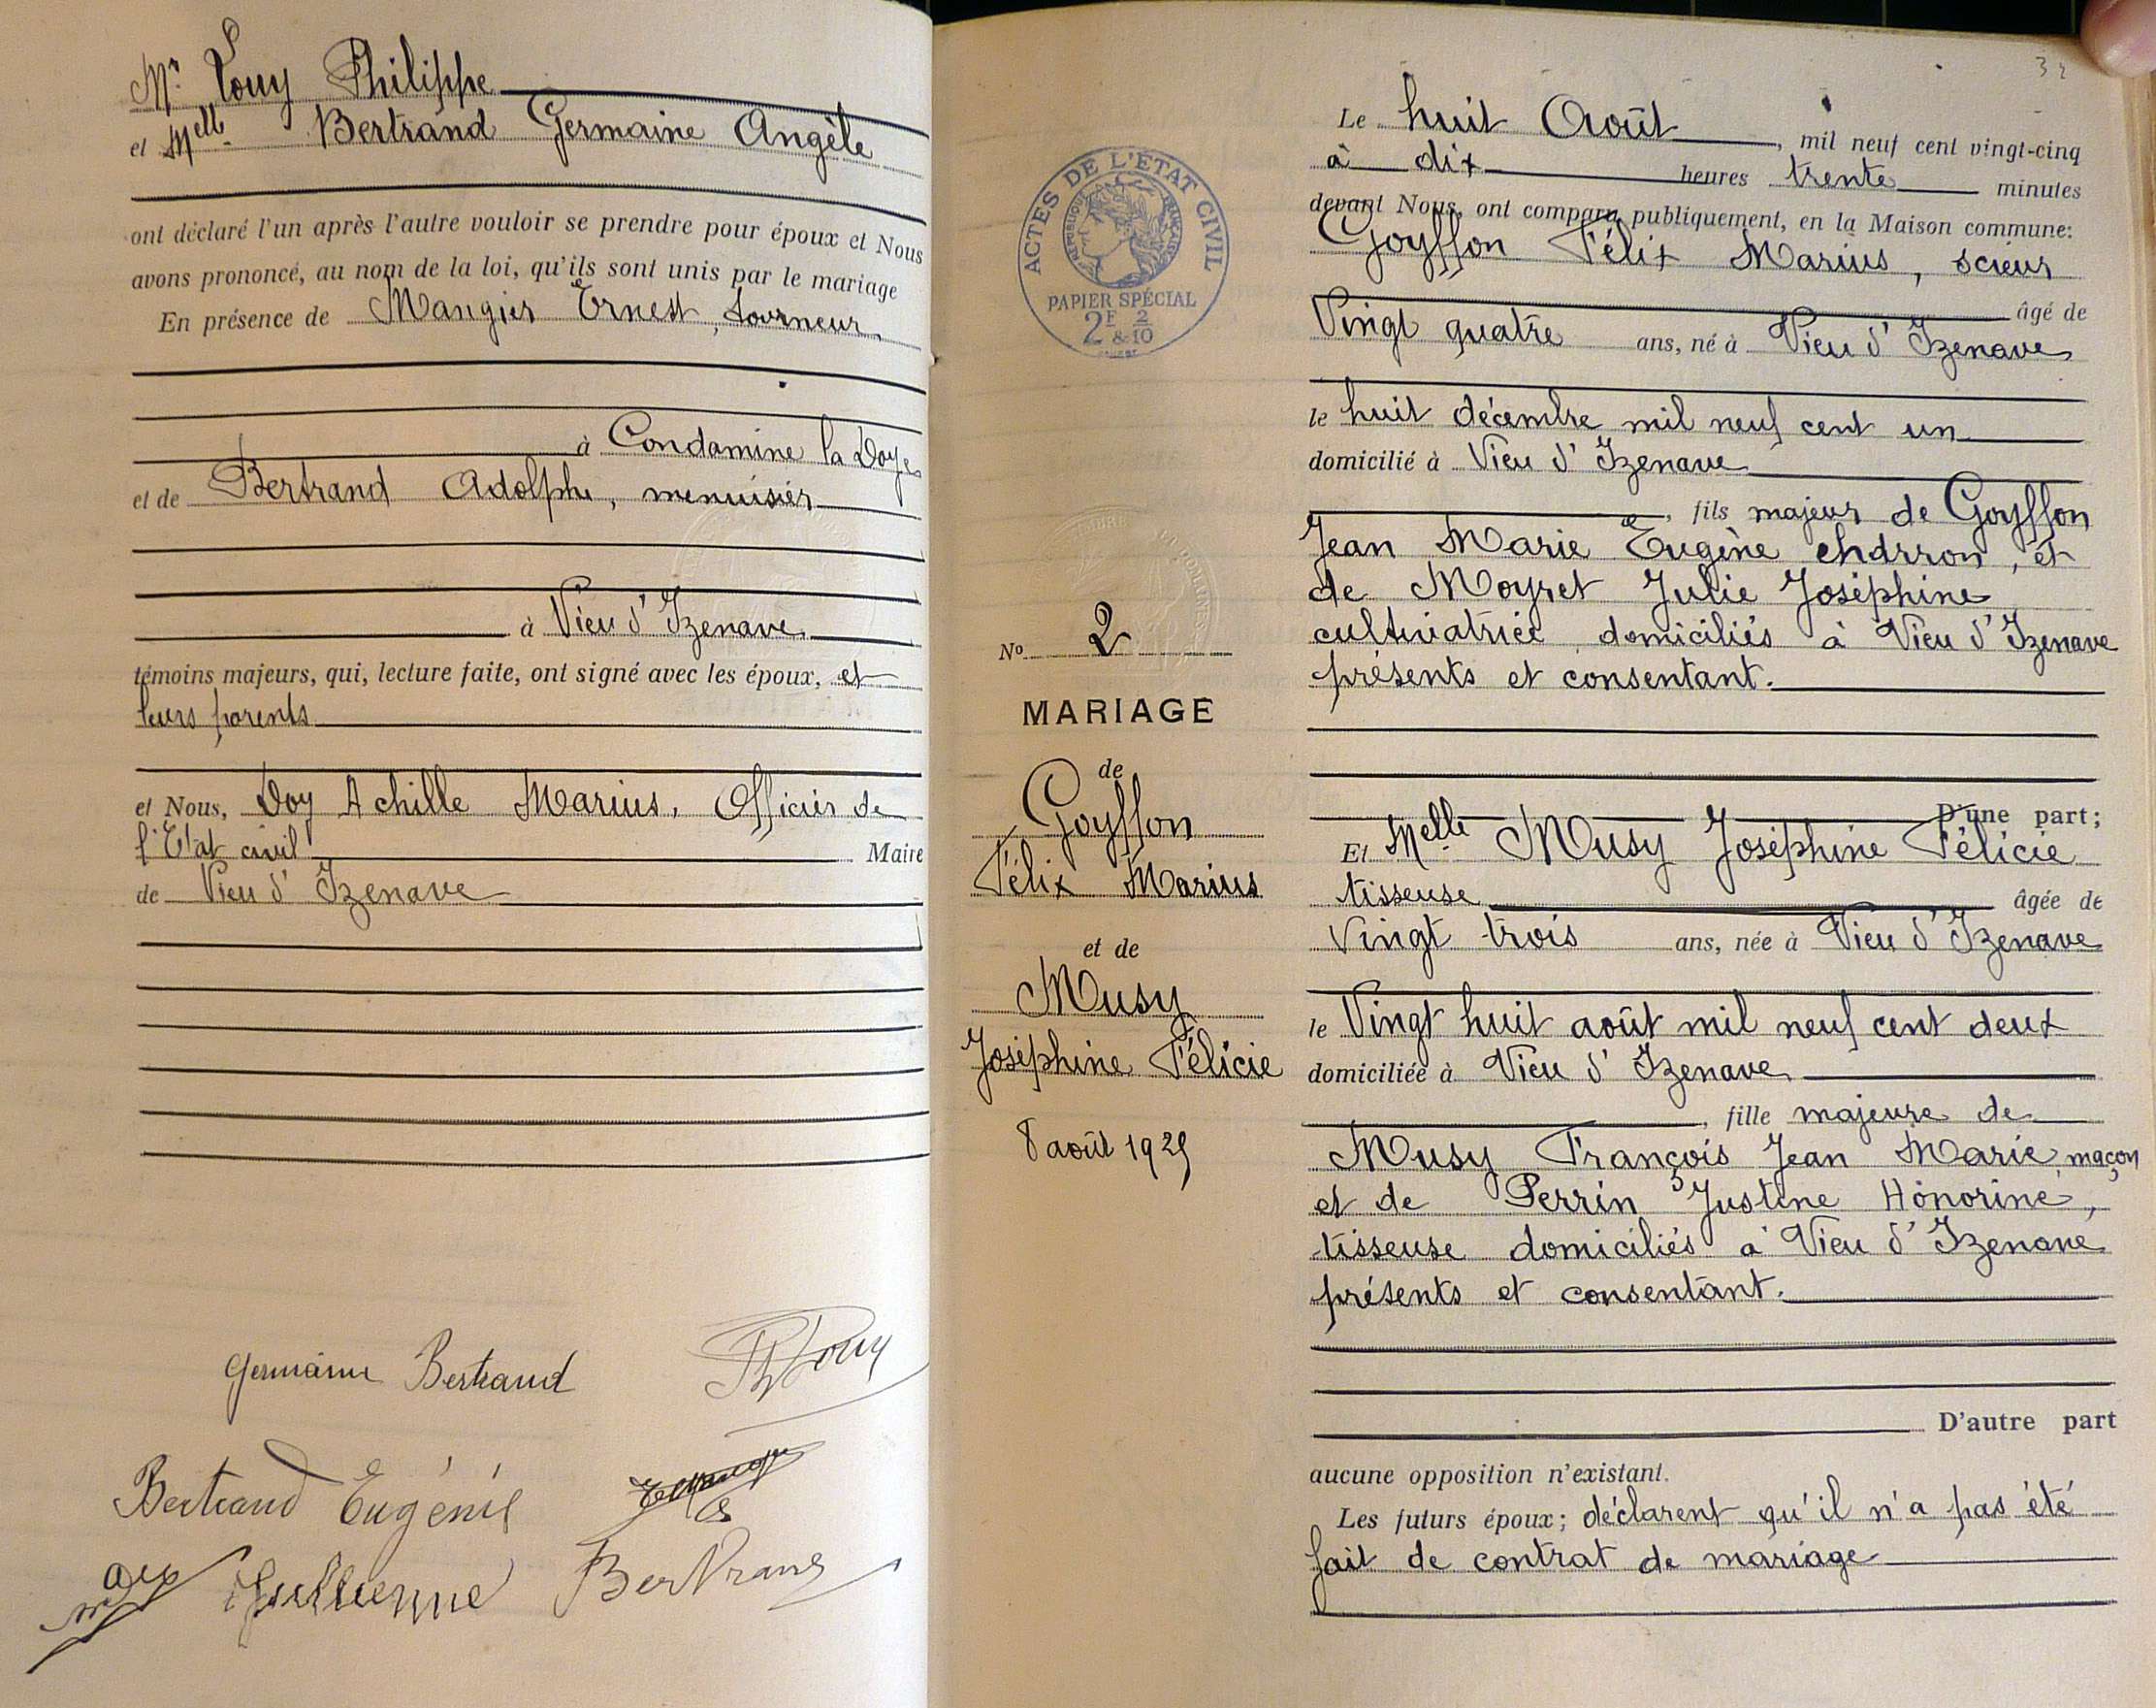 Mr. Touy Philippe
et Melle. Bertrand Germaine Angèle
ont déclaré l'un après l'autre vouloir se prendre pour époux et Nous
avons prononcé, au nom de la loi, qu'ils sont unis par le mariage
En présence de Mangier Ernest, tourneur
à Condamine la Doye
et de Bertrand Adolphe, menuisier
à Vieu d'Izenave
témoins majeurs, qui, lecture faite, ont signé avec les époux, et
leurs parents
et Nous, Doy Achille Marius, Officier de
l'Etat civil Maire
de Vieu d'Izenave
Germaine Bertrand
Bertrand Eugénie
Bertrand
32
ACTES DE L'ÉTAT CIVIL
RÉPUBLIQUE FRANÇAISE
PAPIER SPÉCIAL
2F 2
&10
No 2
MARIAGE
de
Goyffon
Félix Marius
et de
Musy
Joséphine Félicie
8 août 1925
Le huit Août, mil neuf cent vingt-cinq
à dix heures trente minutes
devant Nous, ont comparu publiquement, en la Maison commune:
Goyffon Félix Marius, scieur
âgé de
Vingt quatre ans, né à Vieu d'Izenave
le huit décembre mil neuf cent un
domicilié à Vieu d'Izenave
, fils majeur de Goyffon
Jean Marie Eugène charron, et
de Moyret Julie Joséphine
cultivatrice domiciliés à Vieu d'Izenave
présents et consentant.
D'une part;
Et Melle Musy Joséphine Félicie
tisseuse âgée de
Vingt trois ans, née à Vieu d'Izenave
le Vingt huit août mil neuf cent deux
domiciliée à Vieu d'Izenave
, fille majeure de
Musy François Jean Marie, maçon
et de Perrin Justine Honorine,
tisseuse domiciliés à Vieu d'Izenave
présents et consentant.
D'autre part
aucune opposition n'existant.
Les futurs époux; déclarent qu'il n'a pas été
fait de contrat de mariage